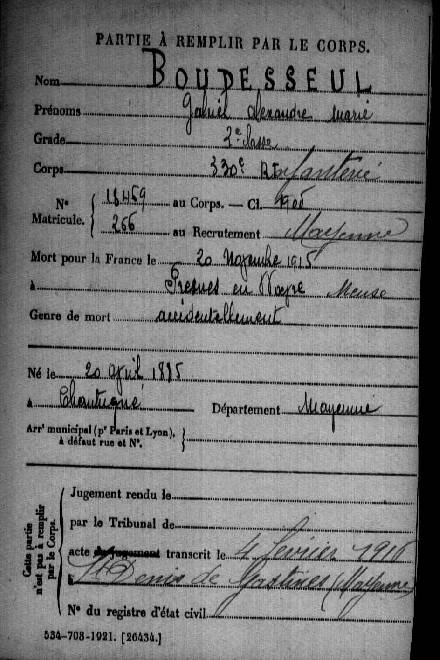 PARTIE À REMPLIR PAR LE CORPS.
Nom BOUDESSEUL
Prénoms Gabriel Alexandre Marie
Grade 2e classe
Corps 330e RInfanterie
N° Matricule. { 18469 au Corps. — Cl. 1905
266 au Recrutement Mayenne
Mort pour la France le 20 Novembre 1915
à Fresnes en Woëvre Meuse
Genre de mort accidentellement
Né le 20 avril 1885
à Chantrigné Département Mayenne
Arrt municipal (pr Paris et Lyon), à défaut rue et N°. }
Cette partie n'est pas à remplir par le Corps.
Jugement rendu le
par le Tribunal de
acte ou jugement transcrit le 4 février 1916
à St Denis de Gastines (Mayenne)
N° du registre d'état civil
534-708-1921. [26434.]